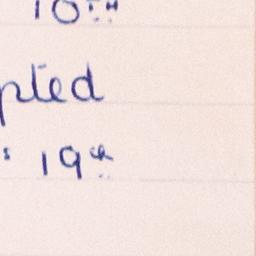 10th
pted
19th